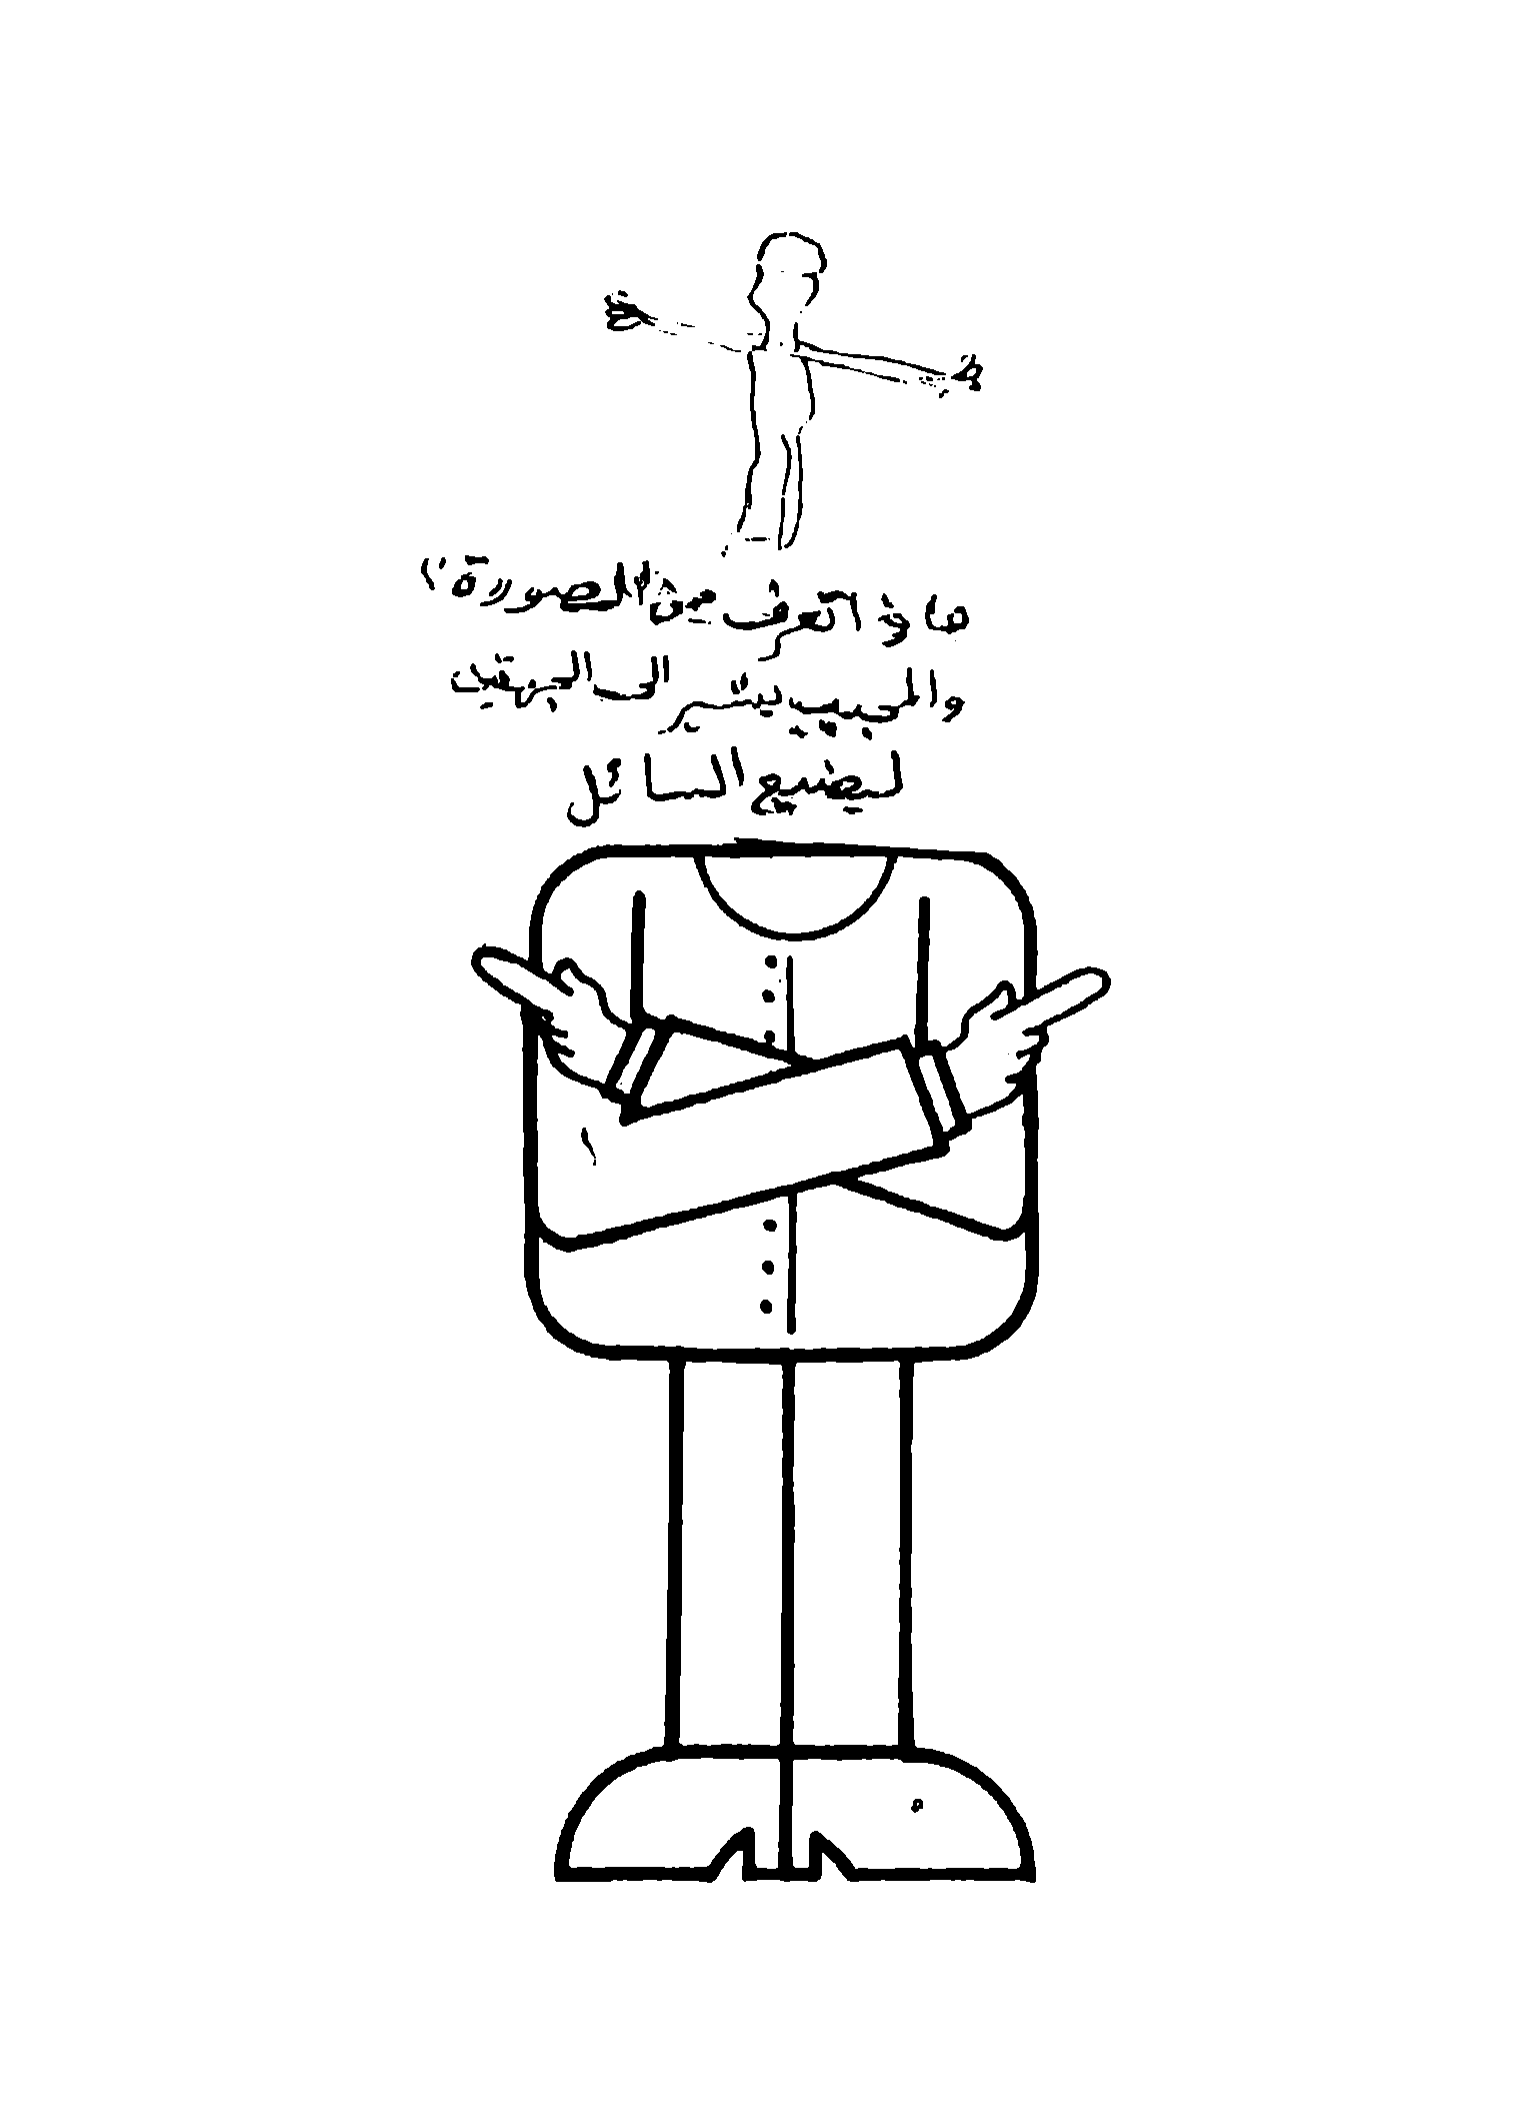 ماذا تعرف من الصورة؟
والمجيب يشير الى الجهتين
ليضيع السائل